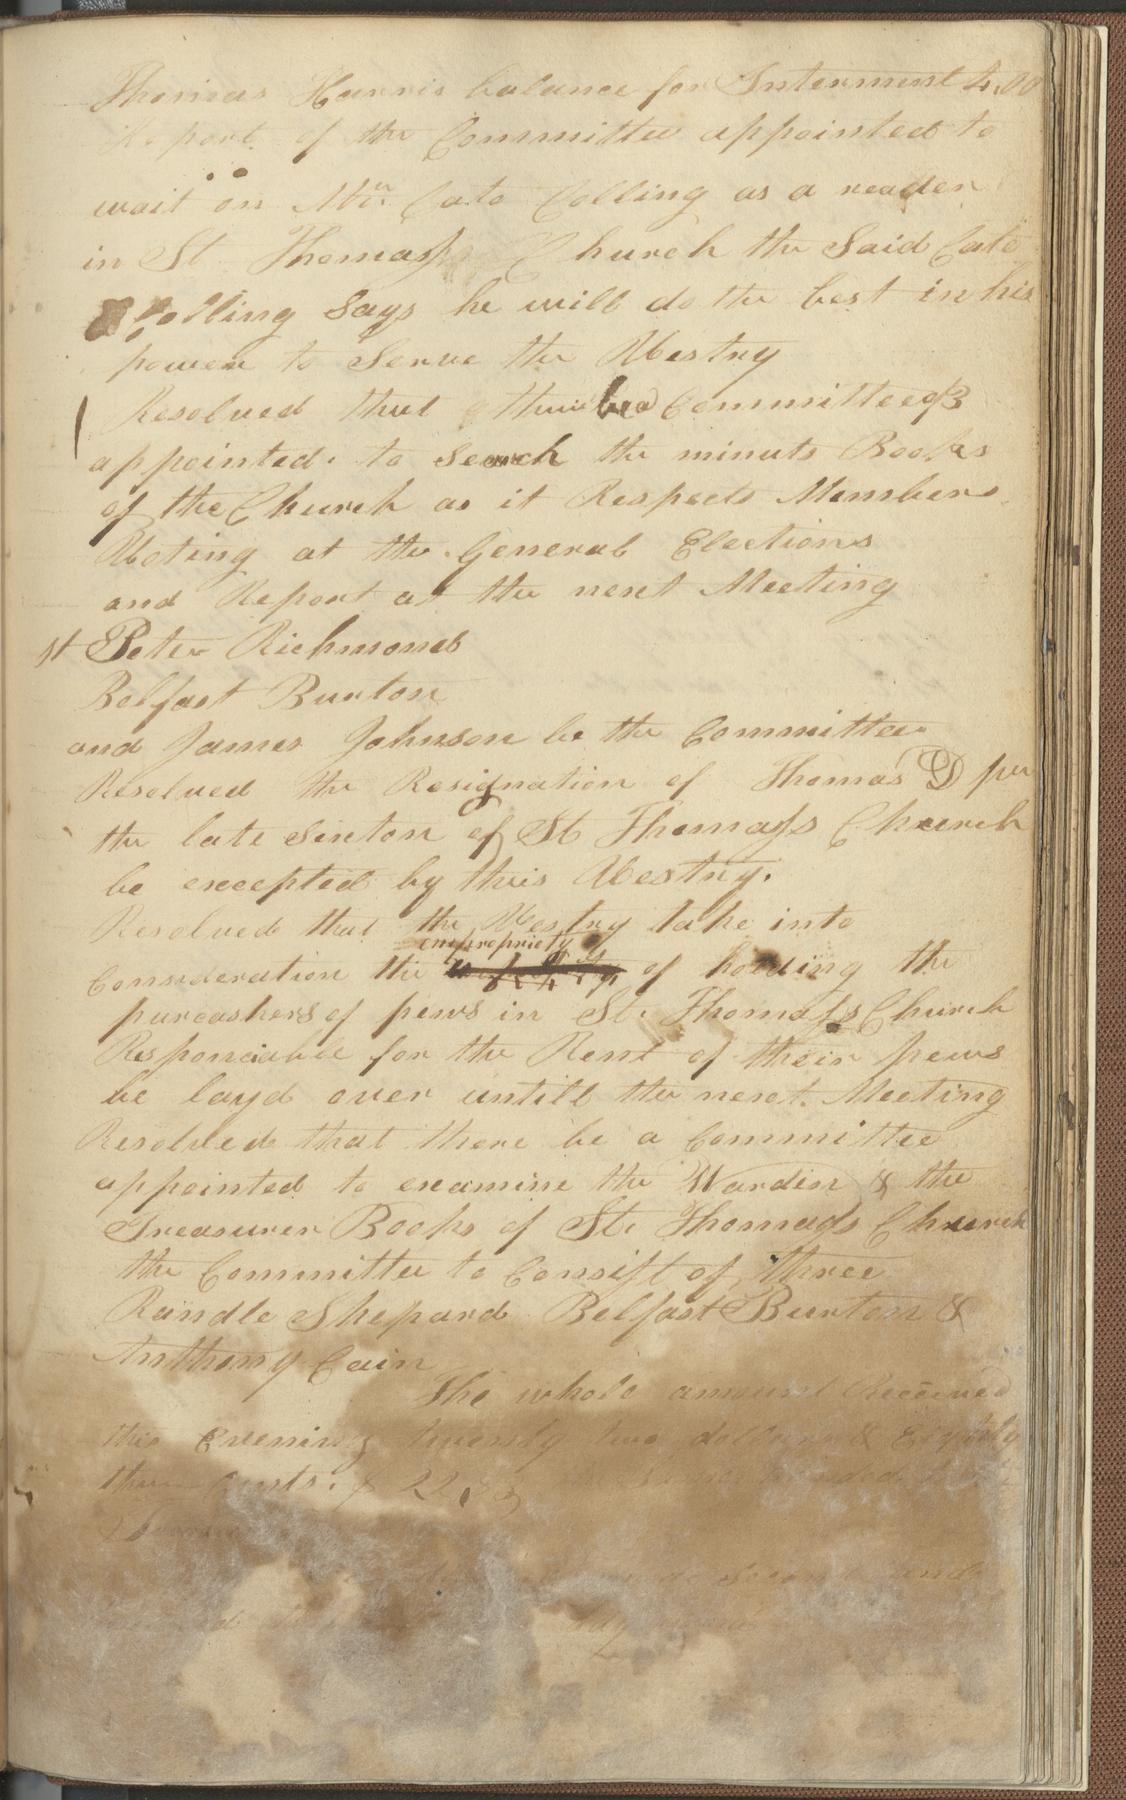 Thomas Harris balance for Interment 4.00
Report of the Committee appointed to
wait on Mr. Cato Colling as a reader
in St Thomass Church the Said Cato
Colling Says he will do the best in his
power to Serve the Vestry
Resolved that there be a Committee of 3
appointed to Search the minuts Books
of the Church as it Respects Members
Voting at the General Elections
and Report at the next Meeting
st Peter Richmond
Belfast Burton
and James Johnson be the Committee
Resolved the Resignation of Thomas D per
the late Sexton of St Thomass Church
be excepted by this Vestry.
Resolved that the Vestry take into
impropriety of
Consideration the of holding the
purcashers of pews in St. Thomass Church
Responciable for the Rent of their pews
be layd over untill the next Meeting
Resolved that there be a Committee
appointed to examine the Wardin & the
Treasurer Books of St. Thomass Church
the Committee to Consist of three
Randle Shepard Belfast Burton &
Anthony Cain
The whole amount Received
this Evening twenty two dollars & Eighty
three Cents. $ 22,83